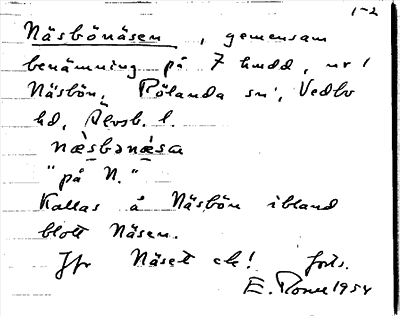 1-2
Näsbönäsen, gemensam
benämning på 7 hmdd, nr 1
Näsbön, Rölanda sn, Vedbo
hd, Älvsb. l.
næ̀sbɔnæ̀sa
"på N."
Kallas å Näsbön ibland
blott Näsen.
Jfr Näset ck! forts.
E. 1954